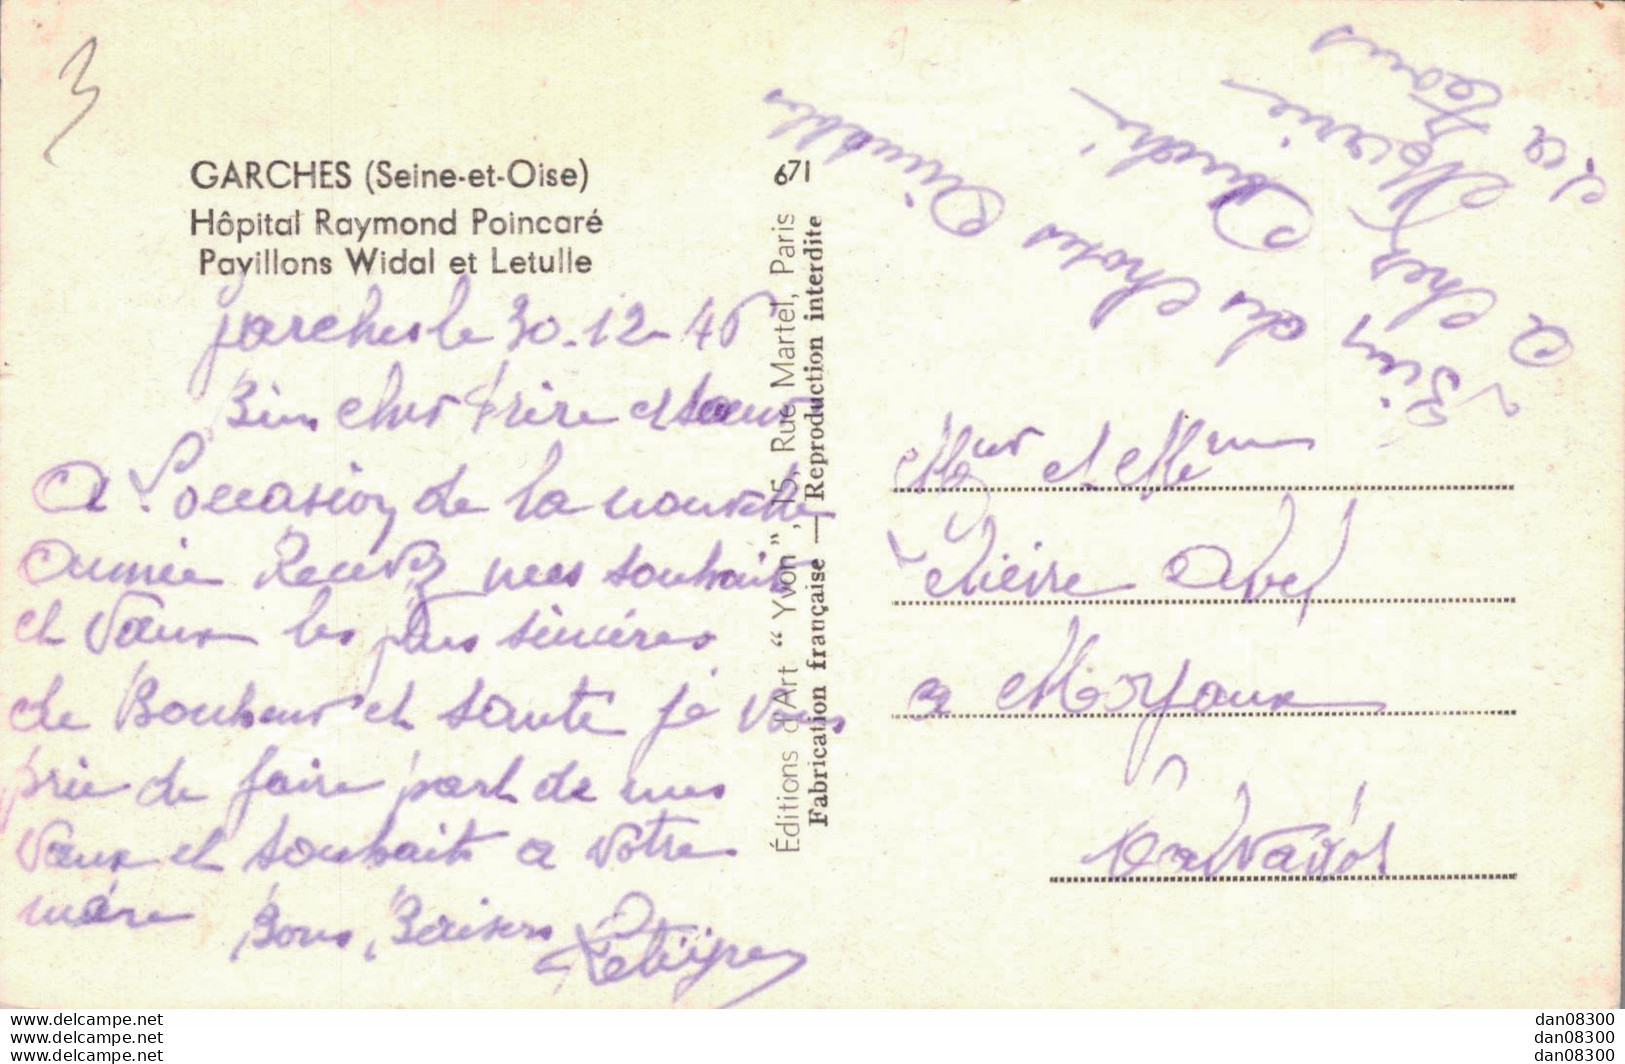 3
GARCHES (Seine-et-Oise)
Hôpital Raymond Poincaré
Pavillons Widal et Letulle
garches le 30-12-46
Bien cher frère et soeur
A l'occasion de la nouvelle
année Recevez mes souhaits
et Vœux les plus sincères
de Bonheur et santé je vous
prie de faire part de mes
Vœux et souhaits a votre
mère Bons Baisers
671
Éditions d'Art “Yvon”, 15, Rue Martel, Paris
Fabrication française — Reproduction interdite
Bien des choses aimables
a chez
Marie
Mr et Mme
Pierre Abel
a Moyaux
Calvados
www.delcampe.net
www.delcampe.net
www.delcampe.net
dan08300
dan08300
dan08300